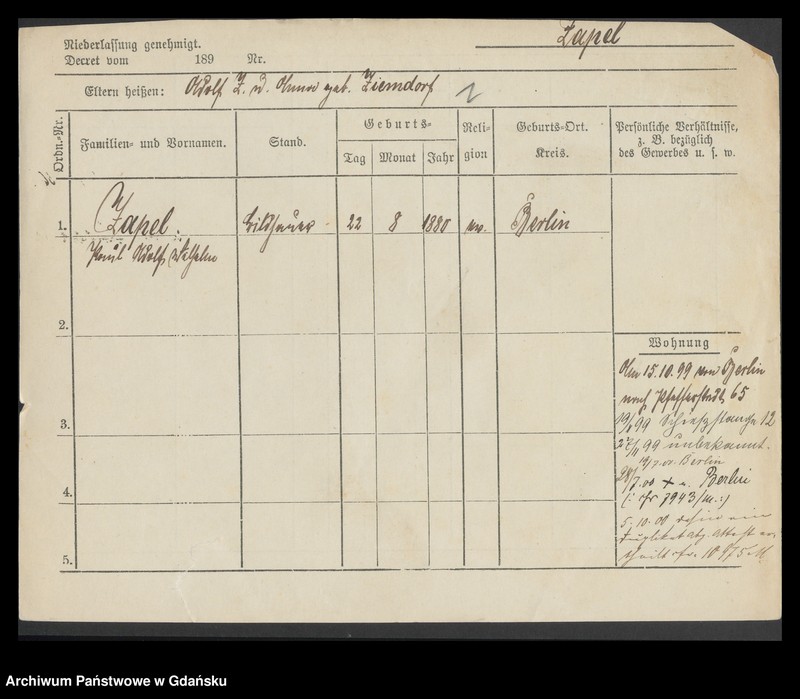 Zapel
Niederlassung genehmigt.
Decret vom 189 Nr.
Eltern heißen: Adolf Z. u. Anna geb. Ziemdorf
Ordn.-Nr.
Familien- und Vornamen.
Stand.
Geburts-
Tag Monat Jahr
Reli-
gion
Geburts-Ort.
Kreis.
Persönliche Verhältnisse,
z. B. bezüglich
des Gewerbes u. s. w.
1. Zapel. Bildhauer 22 8 1880 ev. Berlin
Paul Adolf Wilhelm
2.
Wohnung
Am 15.10.99 von Berlin
nach Pfefferstadt 65
99 Schießstange 12
99 unbekannt.
v. Berlin
28/7.00 Berlin
7943/
3.
4.
5.10.00
10975
5.
Archiwum Państwowe w Gdańsku